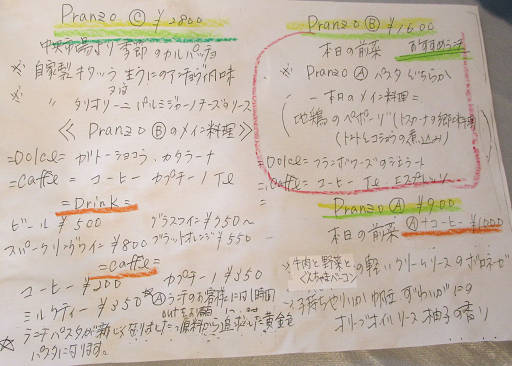 Pranzo Ⓒ ¥2800
中央市場より 季節のカルパッチョ
※ 自家製
又は
タリオリーニ パルミジャーノチーズソース
《 Pranzo Ⓑのメイン料理 》
=Dolce= ガトーショコラ・カタラーナ
=Caffe= コーヒー カプチーノ Te
=Drink=
ビール ¥500 グラスワイン ¥350~
スパークリングワイン ¥800 ブラッドオレンジ ¥550
=Caffe=
コーヒー ¥200 カプチーノ ¥350
ミルクティー ¥350 ※Ⓐランチのお客様には1時間
☆ ランチパスタが新しくなりました。原料から追求した黄金色
パスタになります。
Pranzo Ⓑ ¥1600
本日の前菜 おすすめランチ
※ Pranzo Ⓐ パスタ どちらか
- 本日のメイン料理 =
(地鶏のペポーゾ (トスカーナの郷土料理)
(トマトとコショウの煮込み)
=Dolce= フランボワーズの
=Caffe= コーヒー Te エスプレッソ
Pranzo Ⓐ ¥900
本日の前菜 Ⓐ+コーヒー ¥1000
※ 牛肉と野菜と くんせいベーコン の軽いクリームソースのボロネーゼ
子持ちやりいか 帆立 ずわいがにの
オリーブオイルソース 柚子の香り